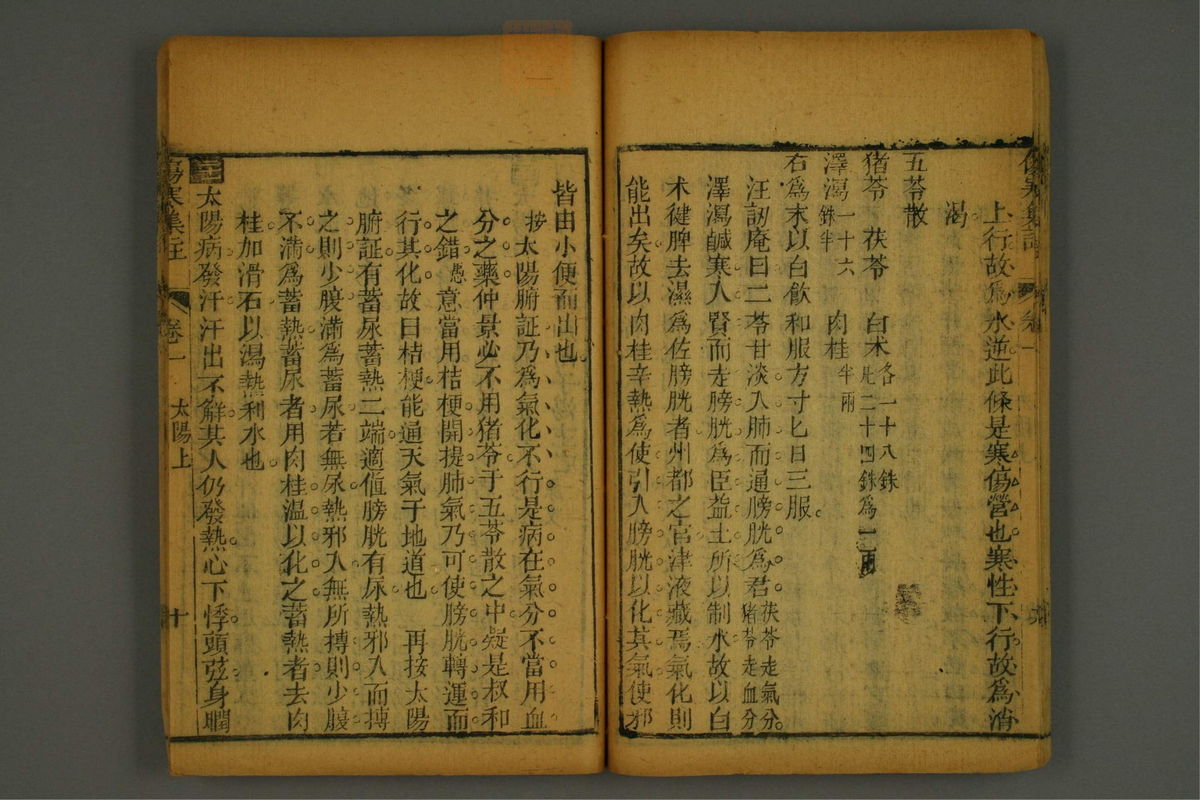 上行故爲水逆此條是寒傷營也寒性下行故爲消
渴
五苓散
猪苓 茯苓 白术各一十八銖 此二十四銖爲一兩
澤瀉一十六銖半 肉桂半兩
右爲末以白飲和服方寸匕日三服
汪訒庵曰二苓甘淡入肺而通膀胱爲君茯苓走氣分猪苓走血分
澤瀉鹹寒入腎而走膀胱爲臣益土所以制水故以白
术健脾去濕爲佐膀胱者州都之官津液藏焉氣化則
能出矣故以肉桂辛熱爲使引入膀胱以化其氣使邪
皆由小便而出也
按太陽腑証乃爲氣化不行是病在氣分不當用血
分之藥仲景必不用猪苓于五苓散之中疑是叔和
之錯愚意當用桔梗開提肺氣乃可使膀胱轉運而
行其化故曰桔梗能通天氣于地道也 再按太陽
腑証有蓄尿蓄熱二端適値膀胱有尿熱邪入而摶
之則少腹滿爲蓄尿若無尿熱邪入無所摶則少腹
不滿爲蓄熱蓄尿者用肉桂温以化之蓄熱者去肉
桂加滑石以瀉熱利水也
太陽病發汗汗出不解其人仍發熱心下悸頭弦身瞤
傷寒集註 卷一 太陽上 十